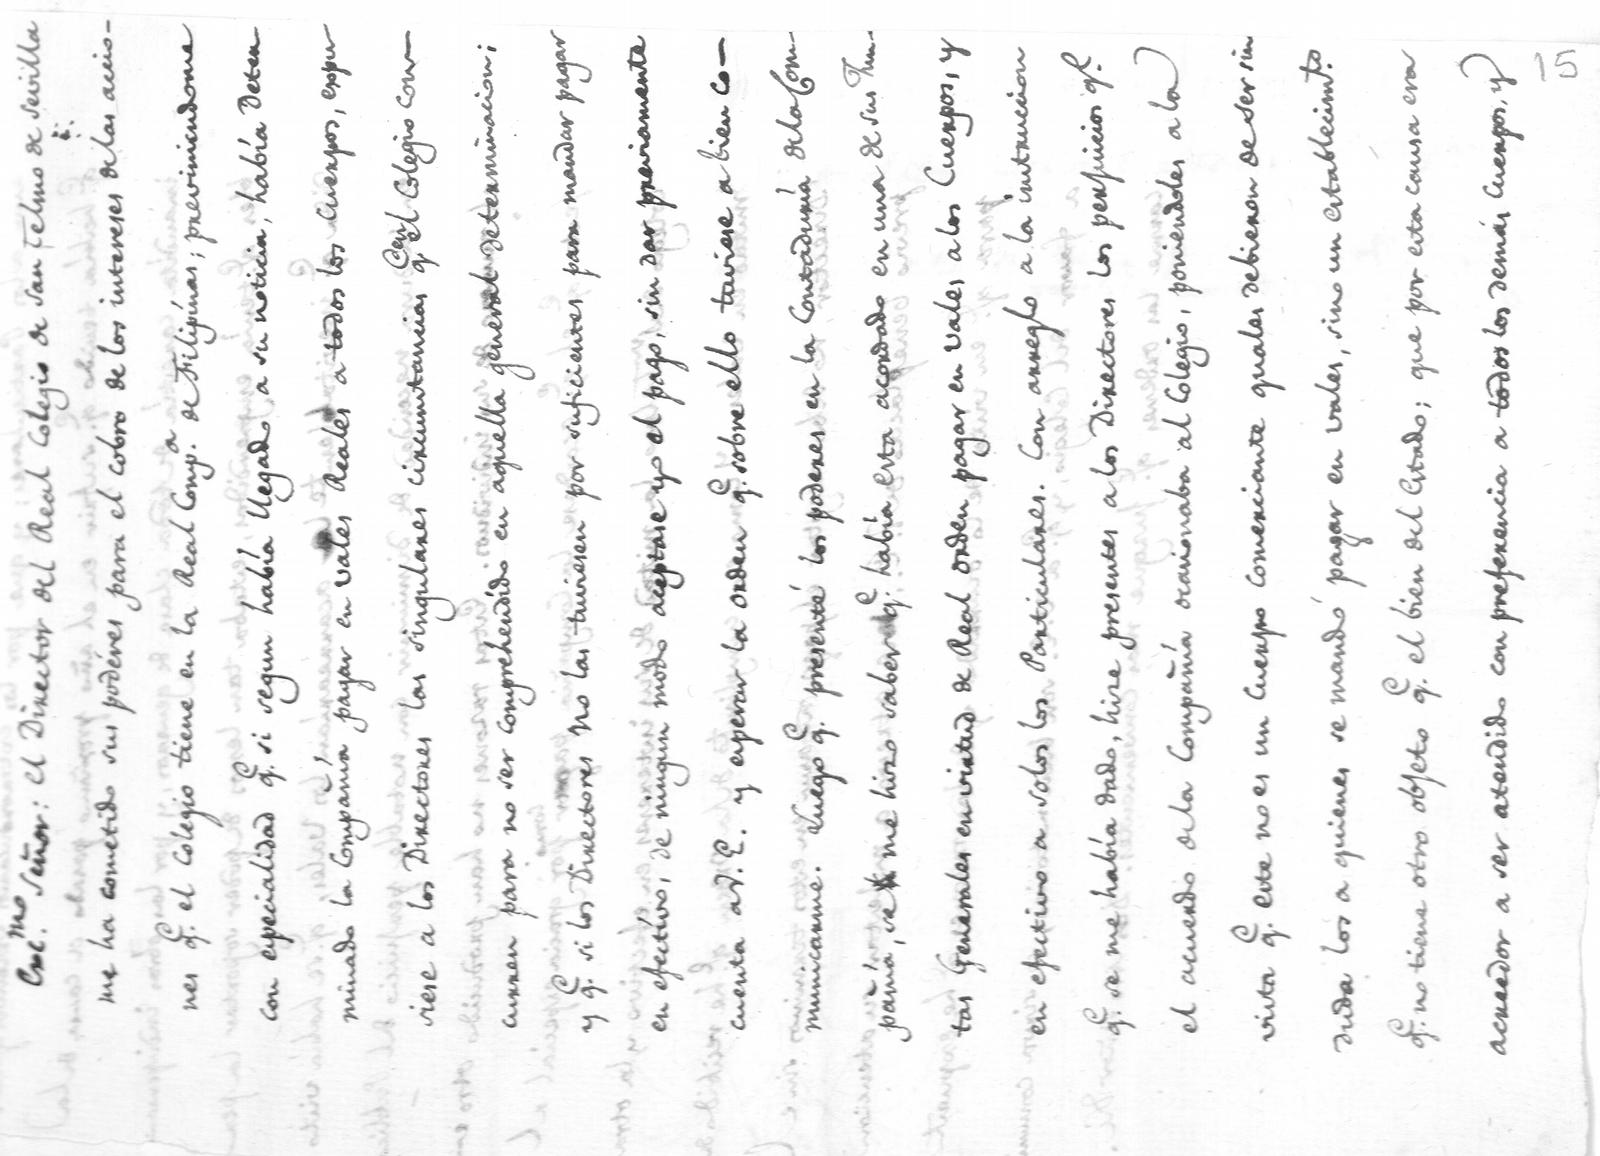 15
Exc.mo Señor: el Director del Real Colegio de San Telmo de Sevilla
me ha cometido sus podéres para el cobro de los intereses de las accio-
nes q.e el Colegio tiene en la Real Comp.a de Filipinas; previniendome
con especialidad q.e si segun había llegado a su noticia, había deter
minado la Compañía pagar en vales Reales a todos los Cuerpos, expu
siese a los Directores las singulares circunstancias q.e en el Colegio con-
curren para no ser comprehendido en aquella general determinacion;
y q.e si los Directores no las tuviesen por suficientes para mandar pagar
en efectivo, de ningun modo aceptase yo el pago, sin dar previamente
cuenta a V.E. y esperar la orden q.e sobre ello tuviese a bien co-
municarme. Luego q.e presenté los poderes en la Contaduría de la Com-
pañía, se me hizo saber q.e había esta acordado en una de sus Jun-
tas Generales en virtud de Real orden pagar en vales a los Cuerpos, y
en efectivo a solos los Particulares. Con arreglo a la instruccion
q.e se me había dado, hize presentes a los Directores los perjuicios q.e
el acuerdo de la Compañía ocasionaba al Colegio, poniendoles a la
vista q.e este no es un Cuerpo comerciante quales debieron de ser sin
duda los a quienes se mandó pagar en vales, sino un establecim.to
q.e no tiene otro objeto q.e el bien del Estado; que por esta causa era
acreedor a ser atendido con preferencia a todos los demás Cuerpos, y